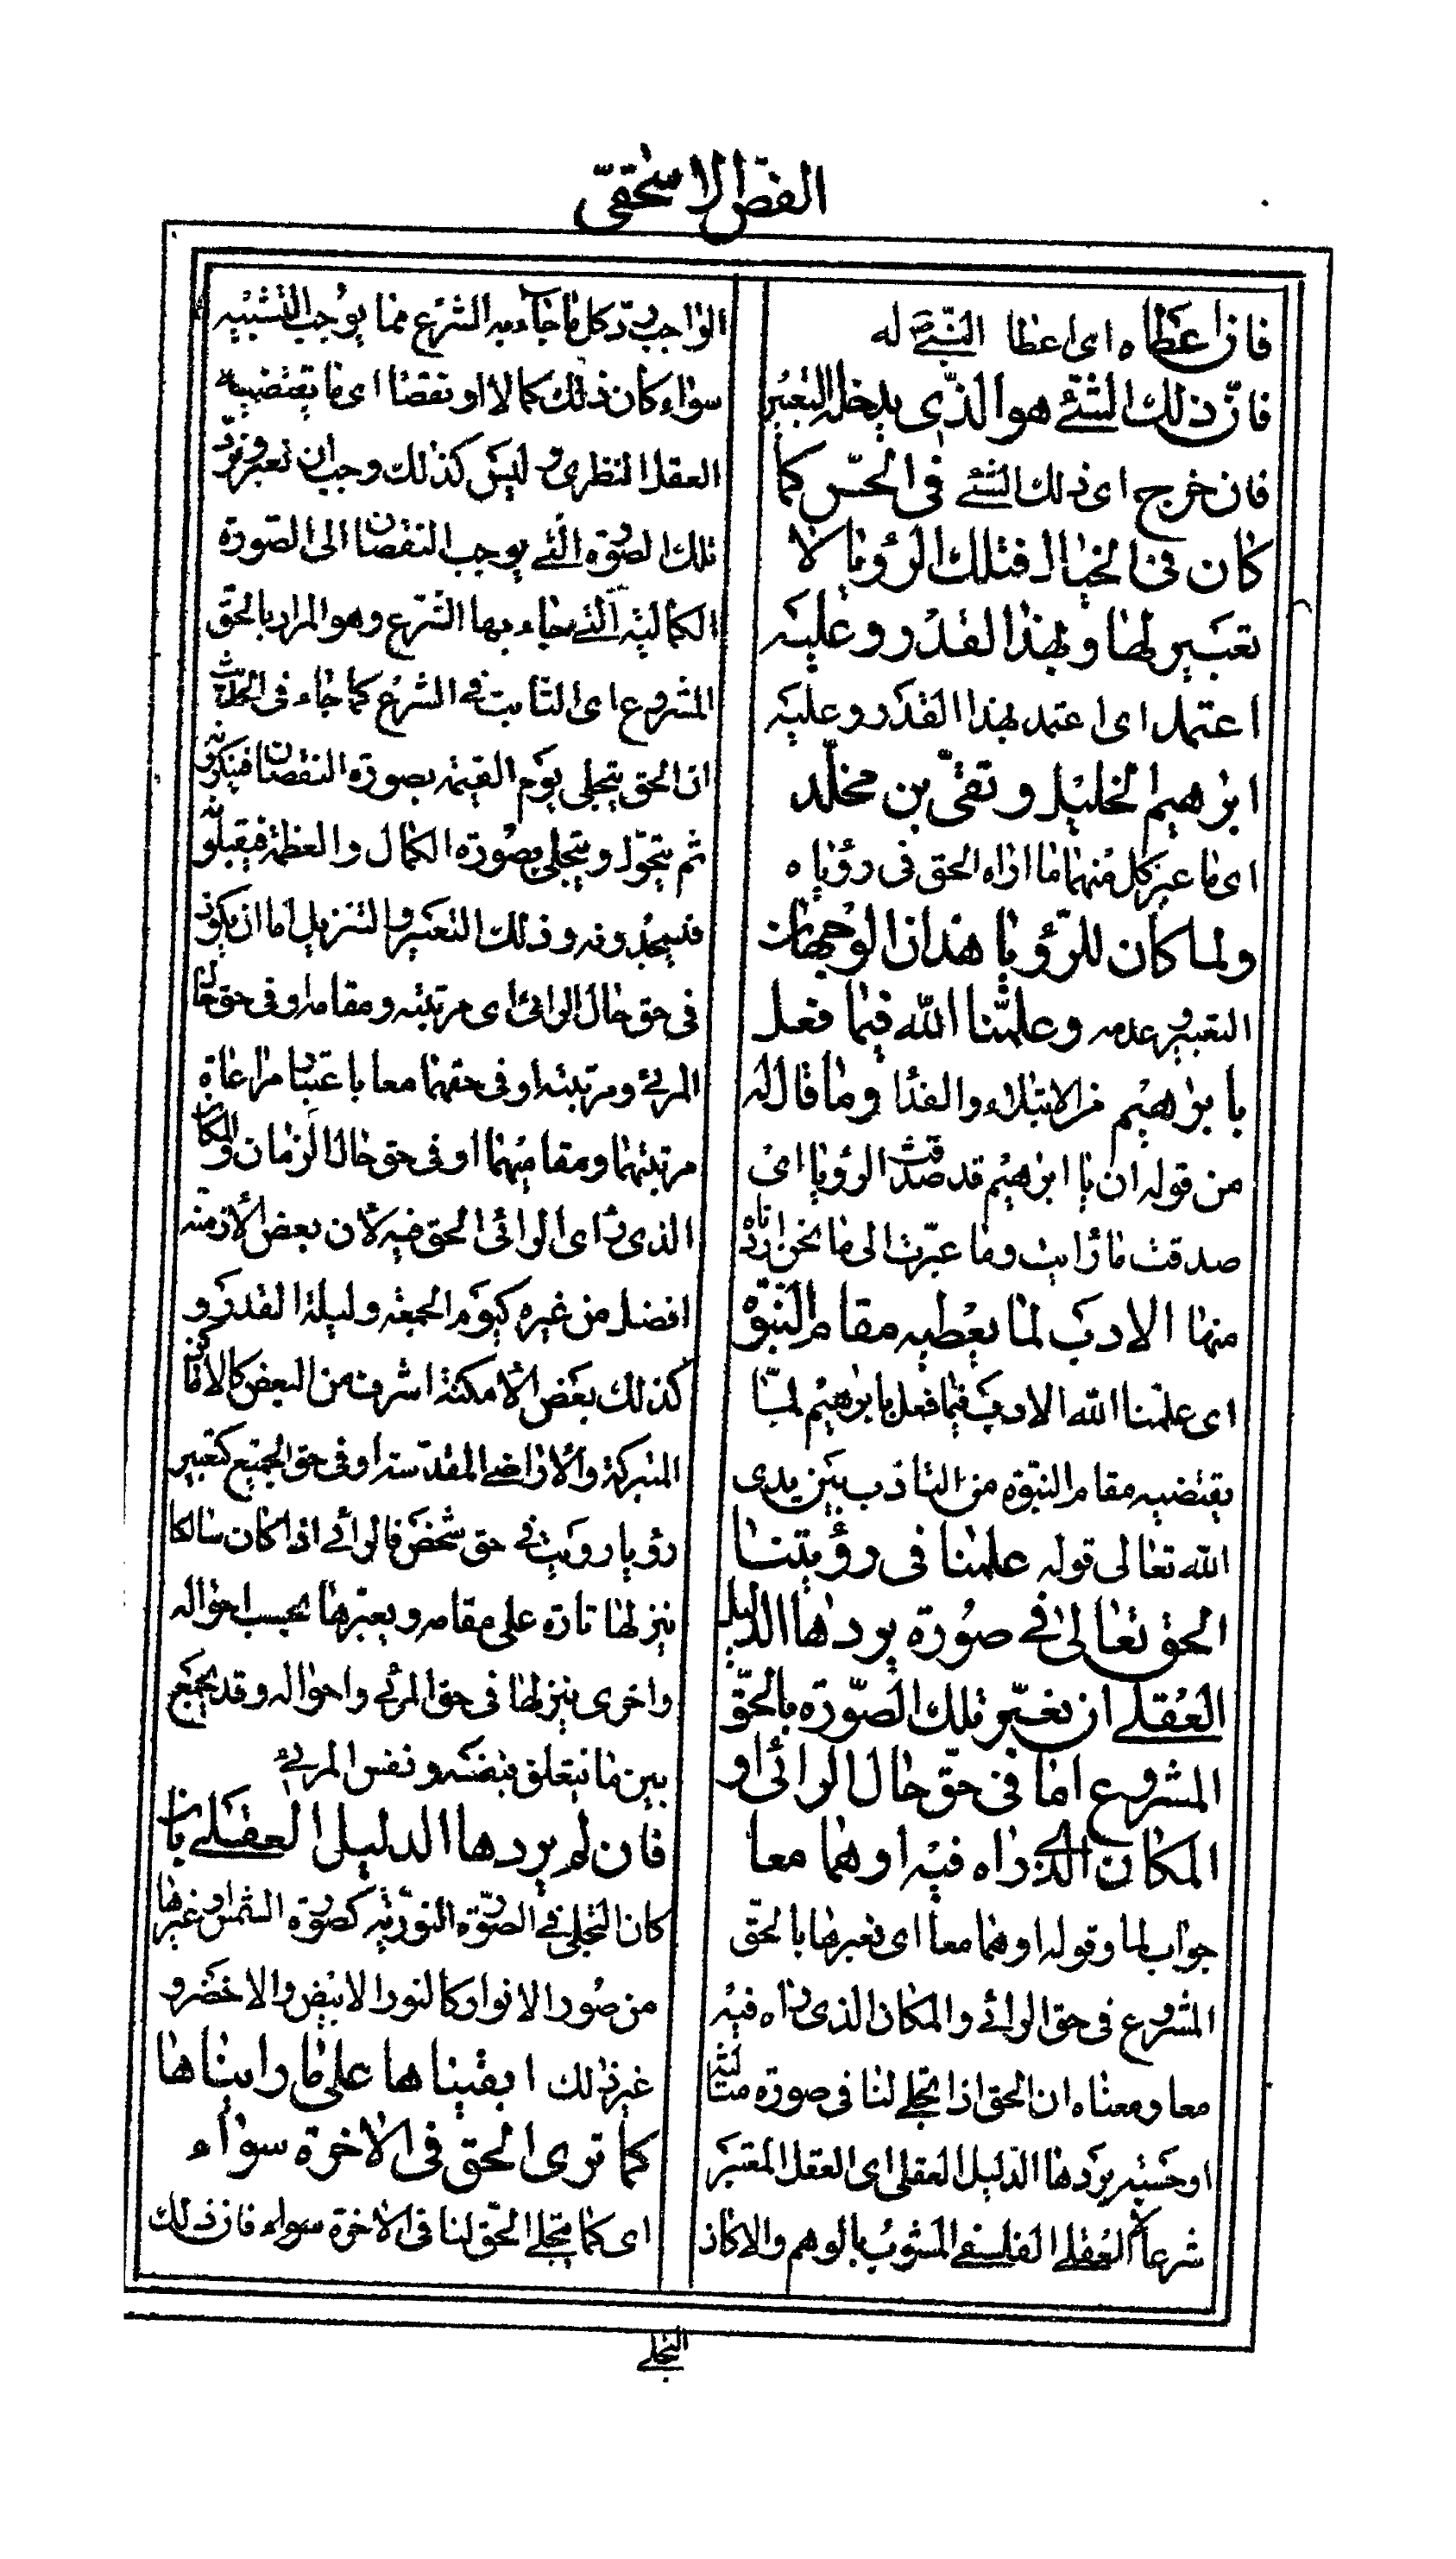 الفص الاسحقى
فان اعطاه اى اعطا الشئ له
فان ذلك الشئ هو الذى يدخله التعبير
فان خرج اى ذلك الشئ فى الحس كما
كان فى الخيال فتلك الرؤيا لا
تعبير لها وبهذا القدر وعليه
اعتمد اى اعتمد بهذا القدر وعليه
ابرهيم الخليل وتقى بن مخلد
اى ما عبر كل منهما ما اراه الحق فى رؤياه
ولما كان للرؤيا هذان الوجهان
التعبير وعدمه وعلمنا الله فيما فعل
بابرهيم من الابتلاء والفدا وما قال له
من قوله ان يا ابرهيم قد صدقت الرؤيا اى
صدقت ما رايت وما عبرت الى ما نحن اردناه
منها الادب لما يعطيه مقام النبوة
اى علمنا الله الادب فيما فعل بابرهيم لما
يقتضيه مقام النبوة من التادب بين يدى
الله تعالى قوله علمنا فى رؤيتنا
الحق تعالى فى صورة يردها الدليل
العقلى ان نعبر تلك الصورة بالحق
المشروع اما فى حق حال الرائى او
المكان الذى راه فيه او هما معا
جواب لما وقوله او هما معا اى نعبرها بالحق
المشروع فى حق الرائى والمكان الذى راه فيه
معا ومعناه ان الحق اذا تجلى لنا فى صورة مثالية
او حسيه يردها الدليل العقلى اى العقل المعتبر
شرعا لا العقلى الفلسفى المشوب بالوهم والا كان
الواجب رد كل ما جاء به الشرع مما يوجب التشبيه
سواء كان ذلك كمالا او نقصا اى ما يقتضيه
العقل النظرى وليس كذلك وجب ان نعبر ونرد
تلك الصورة التى يوجب النقصان الى الصورة
الكمالية التى جاء بها الشرع وهو المراد بالحق
المشروع اى الثابت فى الشرع كما جاء فى الحديث
ان الحق يتجلى يوم القيمة بصورة النقصان فينكرونه
ثم يتحول ويتجلى بصورة الكمال والعظمة فيقبلونه
فيسجدونه وذلك التعبير والتنزيل اما ان يكون
فى حق حال الرائى اى مرتبته ومقامه او فى حق حال
المرئى ومرتبته او فى حقهما معا باعتبار مراعاة
مرتبتهما ومقاميهما او فى حق حال الزمان والمكان
الذى راى الرائى الحق فيه لأن بعض الأزمنة
افضل من غيره كيوم الجمعة وليلة القدر و
كذلك بعض الأمكنة اشرف من البعض كالاماكن
المتبركة والأراضى المقدسة او فى حق الجميع كتعبير
رؤيا رويت فى حق شخص فالرائى اذا كان سالكا
ينزلها تارة على مقامه ويعبرها بحسب احواله
واخرى ينزلها فى حق المرئى واحواله وقد يجمع
بين ما يتعلق بنفسه ونفس المرئى
فان لم يردها الدليل العقلى بان
كان التجلى فى الصورة النورية كصورة الشمس او غيرها
من صور الانوار كالنور الابيض والاخضر و
غير ذلك ابقيناها على ما رايناها
كما ترى الحق فى الاخرة سواء
اى كما يتجلى الحق لنا فى الاخرة سواء فان ذلك
التجلى